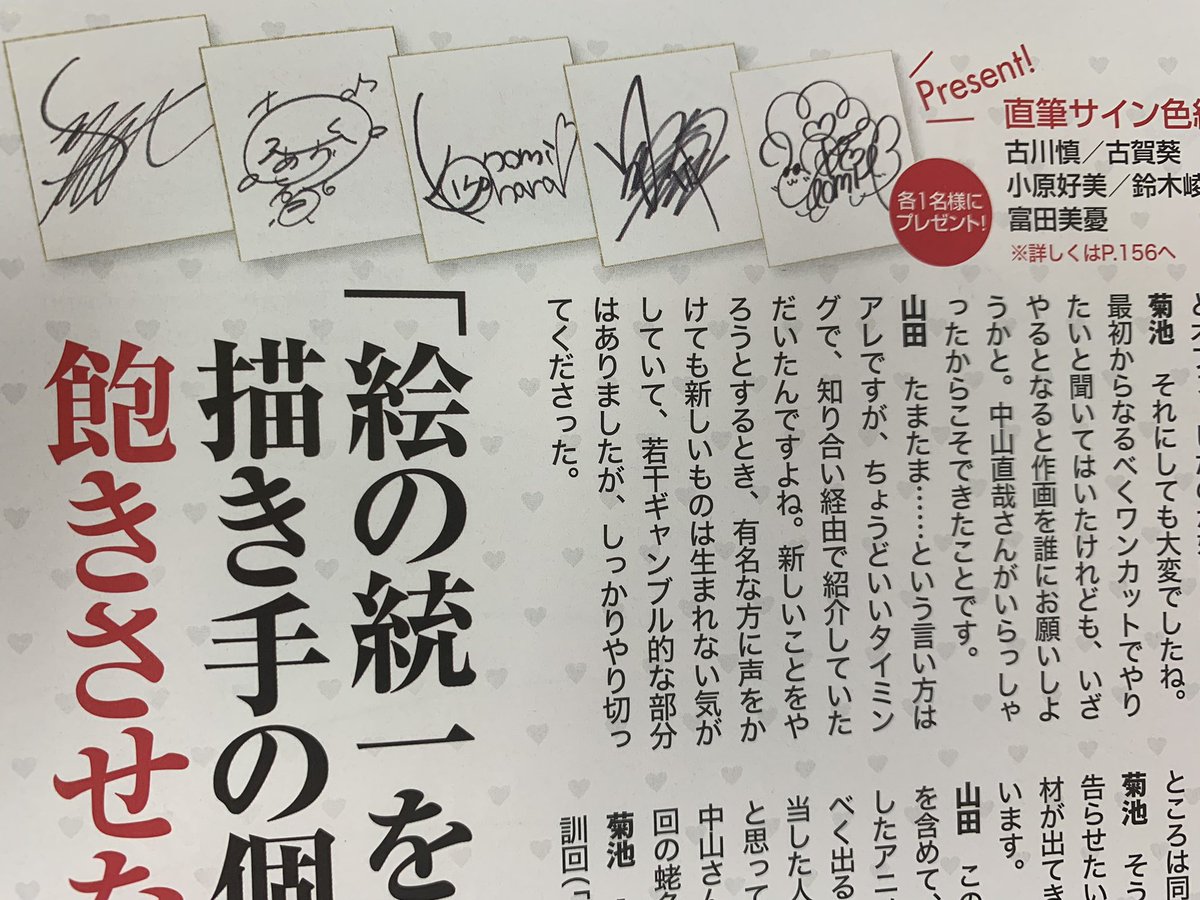 Present!
直筆サイン色紙
古川慎／古賀葵
小原好美／鈴木崚
富田美憂
※詳しくはP.156へ
各1名様に
プレゼント!
菊池　それにしても大変でしたね。
最初からなるべくワンカットでやり
たいと聞いてはいたけれども、いざ
やるとなると作画を誰にお願いしよ
うかと。中山直哉さんがいらっしゃ
ったからこそできたことです。
山田　たまたま……という言い方は
アレですが、ちょうどいいタイミン
グで、知り合い経由で紹介していた
だいたんですよね。新しいことをや
ろうとするとき、有名な方に声をか
けても新しいものは生まれない気が
していて、若干ギャンブル的な部分
はありましたが、しっかりやり切っ
てくださった。
「絵の統一を
描き手の個
飽きさせな
ところは同
菊池　そう
告らせたい
材が出てき
います。
山田　この
を含めて、
したアニ
べく出る
当した人
と思って
中山さん
回の
菊池
訓回(「